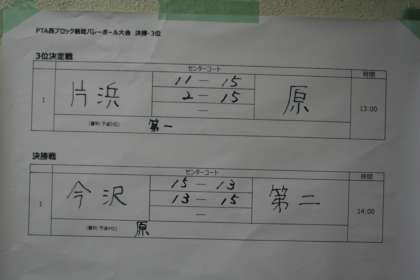 PTA西ブロック親睦バレーボール大会 決勝・3位
3位決定戦
センターコート 時間
1 片浜 11 — 15 原 13:00
2 — 15
—
第一
決勝戦
センターコート 時間
1 今沢 15 — 13 第二 14:00
13 — 15
—
原